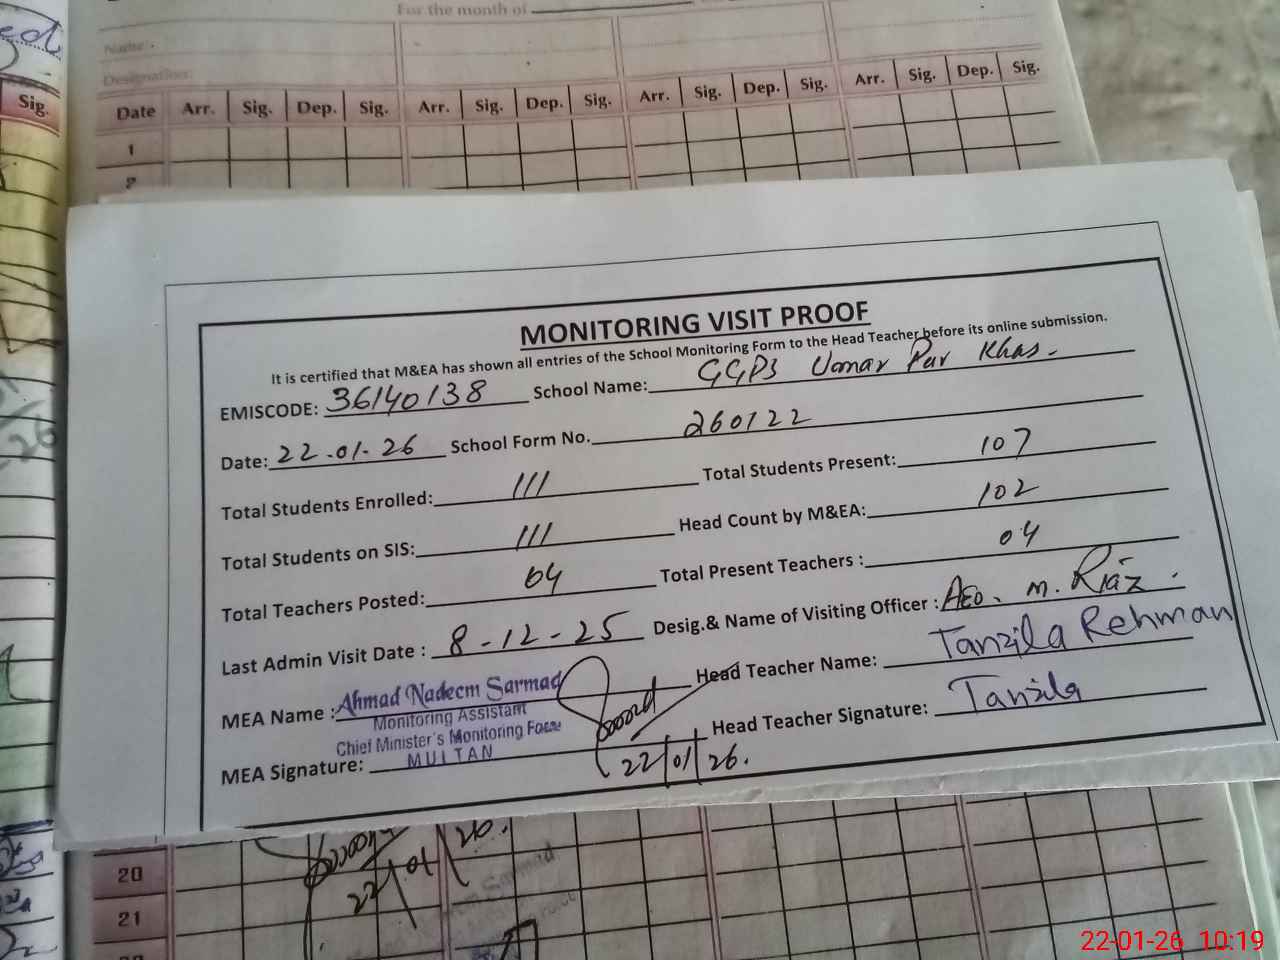 For the month of
Name:
Designation:
Sig.
Date Arr. Sig. Dep. Sig. Arr. Sig. Dep. Sig. Arr. Sig. Dep. Sig. Arr. Sig. Dep. Sig.
1
2
MONITORING VISIT PROOF
It is certified that M&EA has shown all entries of the School Monitoring Form to the Head Teacher before its online submission.
EMISCODE: 36140138 School Name: GGPS Umar Pur Khas.
Date: 22-01-26 School Form No. 260122
Total Students Enrolled: 111 Total Students Present: 107
Total Students on SIS: 111 Head Count by M&EA: 102
Total Teachers Posted: 04 Total Present Teachers : 04
Last Admin Visit Date : 8-12-25 Desig.& Name of Visiting Officer : AEO. M. Riaz.
MEA Name : Ahmad Nadeem Sarmad Head Teacher Name: Tanzila Rehman
Monitoring Assistant
Chief Minister's Monitoring Force
MULTAN
MEA Signature: 22/01/26. Head Teacher Signature: Tanzila
20
21
22/01/26.
22-01-26 10:19